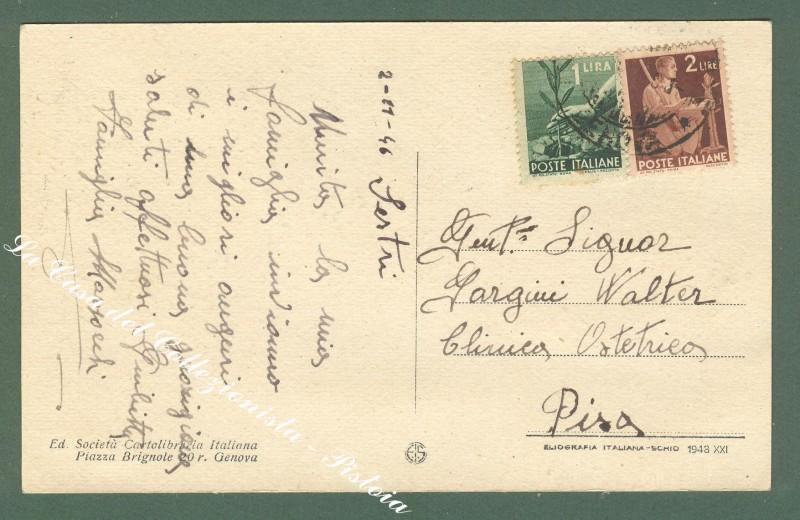 2-11-46 Sestri
Unita la mia
famiglia inviamo
i migliori auguri
di una buona guarigione
saluti affettuosi Giulietta
Famiglia
1 LIRA
POSTE ITALIANE
2 LIRE
POSTE ITALIANE
Gent. Signor
Gargini Walter
Clinica Ostetrica
Pisa
Ed. Società Cartolibraria Italiana
Piazza Brignole 20 r. Genova
ELIOGRAFIA ITALIANA-SCHIO 1943 XXI
La Casa del Collezionista - Pistoia